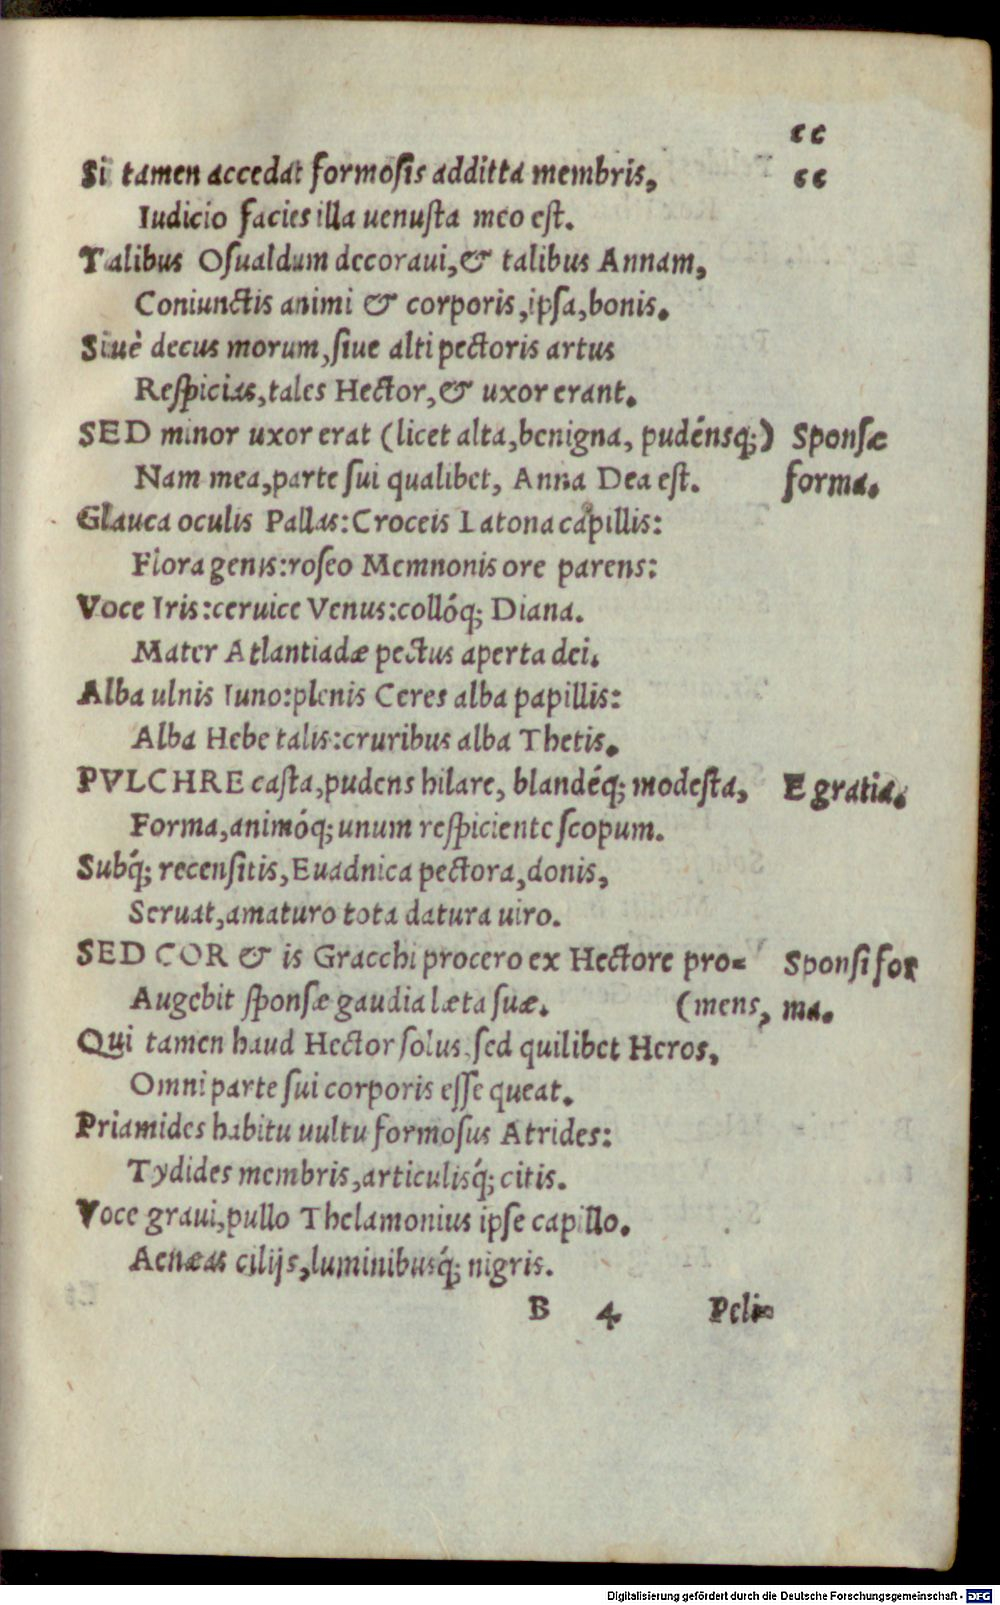 cc
Si tamen accedat formosis additta membris, cc
Iudicio facies illa uenusta meo est.
Talibus Osualdum decoraui, & talibus Annam,
Coniunctis animi & corporis, ipsa, bonis.
Siuè decus morum, siue alti pectoris artus
Respicias, tales Hector, & uxor erant.
SED minor uxor erat (licet alta, benigna, pudénsq;) Sponsæ
Nam mea, parte sui qualibet, Anna Dea est. forma.
Glauca oculis Pallas: Croceis Latona capillis:
Flora genis: roseo Memnonis ore parens:
Voce Iris: ceruice Venus: collóq; Diana.
Mater Atlantiadæ pectus aperta dei.
Alba ulnis Iuno: plenis Ceres alba papillis:
Alba Hebe talis: cruribus alba Thetis.
PVLCHRE casta, pudens hilare, blandéq; modesta, E gratia.
Forma, animóq; unum respiciente scopum.
Subq́; recensitis, Euadnica pectora, donis,
Seruat, amaturo tota datura uiro.
SED COR & is Gracchi procero ex Hectore pro= Sponsi for
Augebit sponsæ gaudia læta suæ. (mens, ma.
Qui tamen haud Hector solus, sed quilibet Heros,
Omni parte sui corporis esse queat.
Priamides habitu uultu formosus Atrides:
Tydides membris, articulisq́; citis.
Voce graui, pullo Thelamonius ipse capillo.
Aeneas cilijs, luminibusq́; nigris.
B 4 Peli=
Digitalisierung gefördert durch die Deutsche Forschungsgemeinschaft - DFG